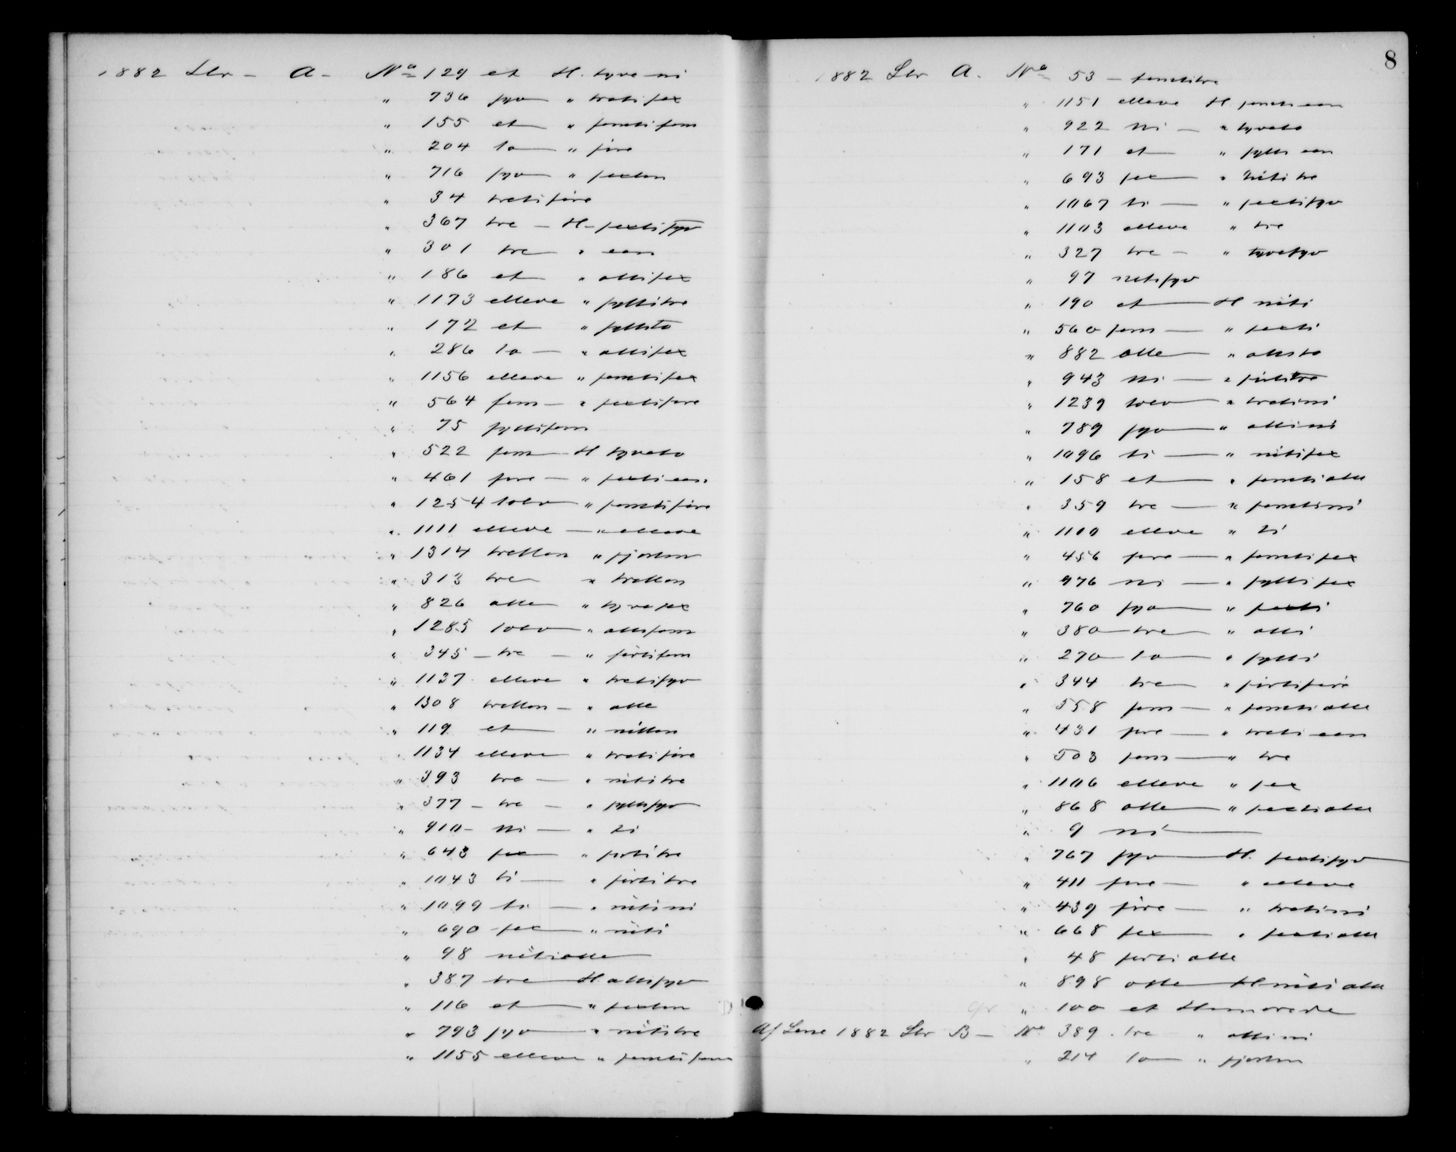 1882 Ltr - A - No 129 et H. tyve ni
" 736 syv " tretisex
" 155 et " femtifem
" 204 to " fire
" 716 syv " sexten
" 34 tretifire
" 367 tre - H. sextisyv
" 301 tre " een
" 186 et " ottisex
" 1173 elleve " syttitre
" 172 et " syttito
" 286 to " ottisex
" 1156 elleve " femtisex
" 564 fem " sextifire
" 75 syttifem
" 522 fem H tyveto
" 461 fire " sexti een
" 1254 tolv " femtifire
" 1111 elleve " elleve
" 1314 tretten " fjorten
" 313 tre " tretten
" 826 otte " tyvesex
" 1285 tolv " ottifem
" 345 tre " førtifem
" 1137 elleve " tretisyv
" 1308 tretten " otte
" 119 et " nitten
" 1134 elleve " tretifire
" 393 tre " nititre
" 377 tre " syttisyv
" 910 ni " ti
" 643 sex " førtitre
" 1043 ti " førtitre
" 1099 ti " nitini
" 690 sex " niti
" 98 nitiotte
" 387 tre H ottisyv
" 116 et " sexten
" 793 syv " nititre
" 1155 elleve " femtifem
8
1882 Ltr A. No 53 - femtitre
" 1151 elleve H femti een
" 922 ni " tyveto
" 171 et " sytti een
" 693 sex " niti tre
" 1067 ti " sextisyv
" 1103 elleve " tre
" 327 tre " tyvesyv
" 97 nitisyv
" 190 et H niti
" 560 fem " sexti
" 882 otte " ottito
" 943 ni " førtitre
" 1239 tolv " tretini
" 789 syv " ottini
" 1096 ti " nitisex
" 158 et " femtiotte
" 359 tre " femtini
" 1110 elleve " ti
" 456 fire " femtisex
" 976 ni " syttisex
" 760 syv " sexti
" 380 tre " otti
" 270 to " sytti
" 344 tre " førtifire
" 558 fem " femtiotte
" 431 fire " treti een
" 503 fem " tre
" 1106 elleve " sex
" 868 otte " sextiotte
" 9 ni
" 767 syv H. sextisyv
" 411 fire " elleve
" 439 fire " tretini
" 668 sex " sextiotte
" 48 førti otte
" 898 otte H nitiotte
" 100 et Hundrede
Af Serie 1882 Ltr B - No 389 tre " ottini
" 214 to " fjorten